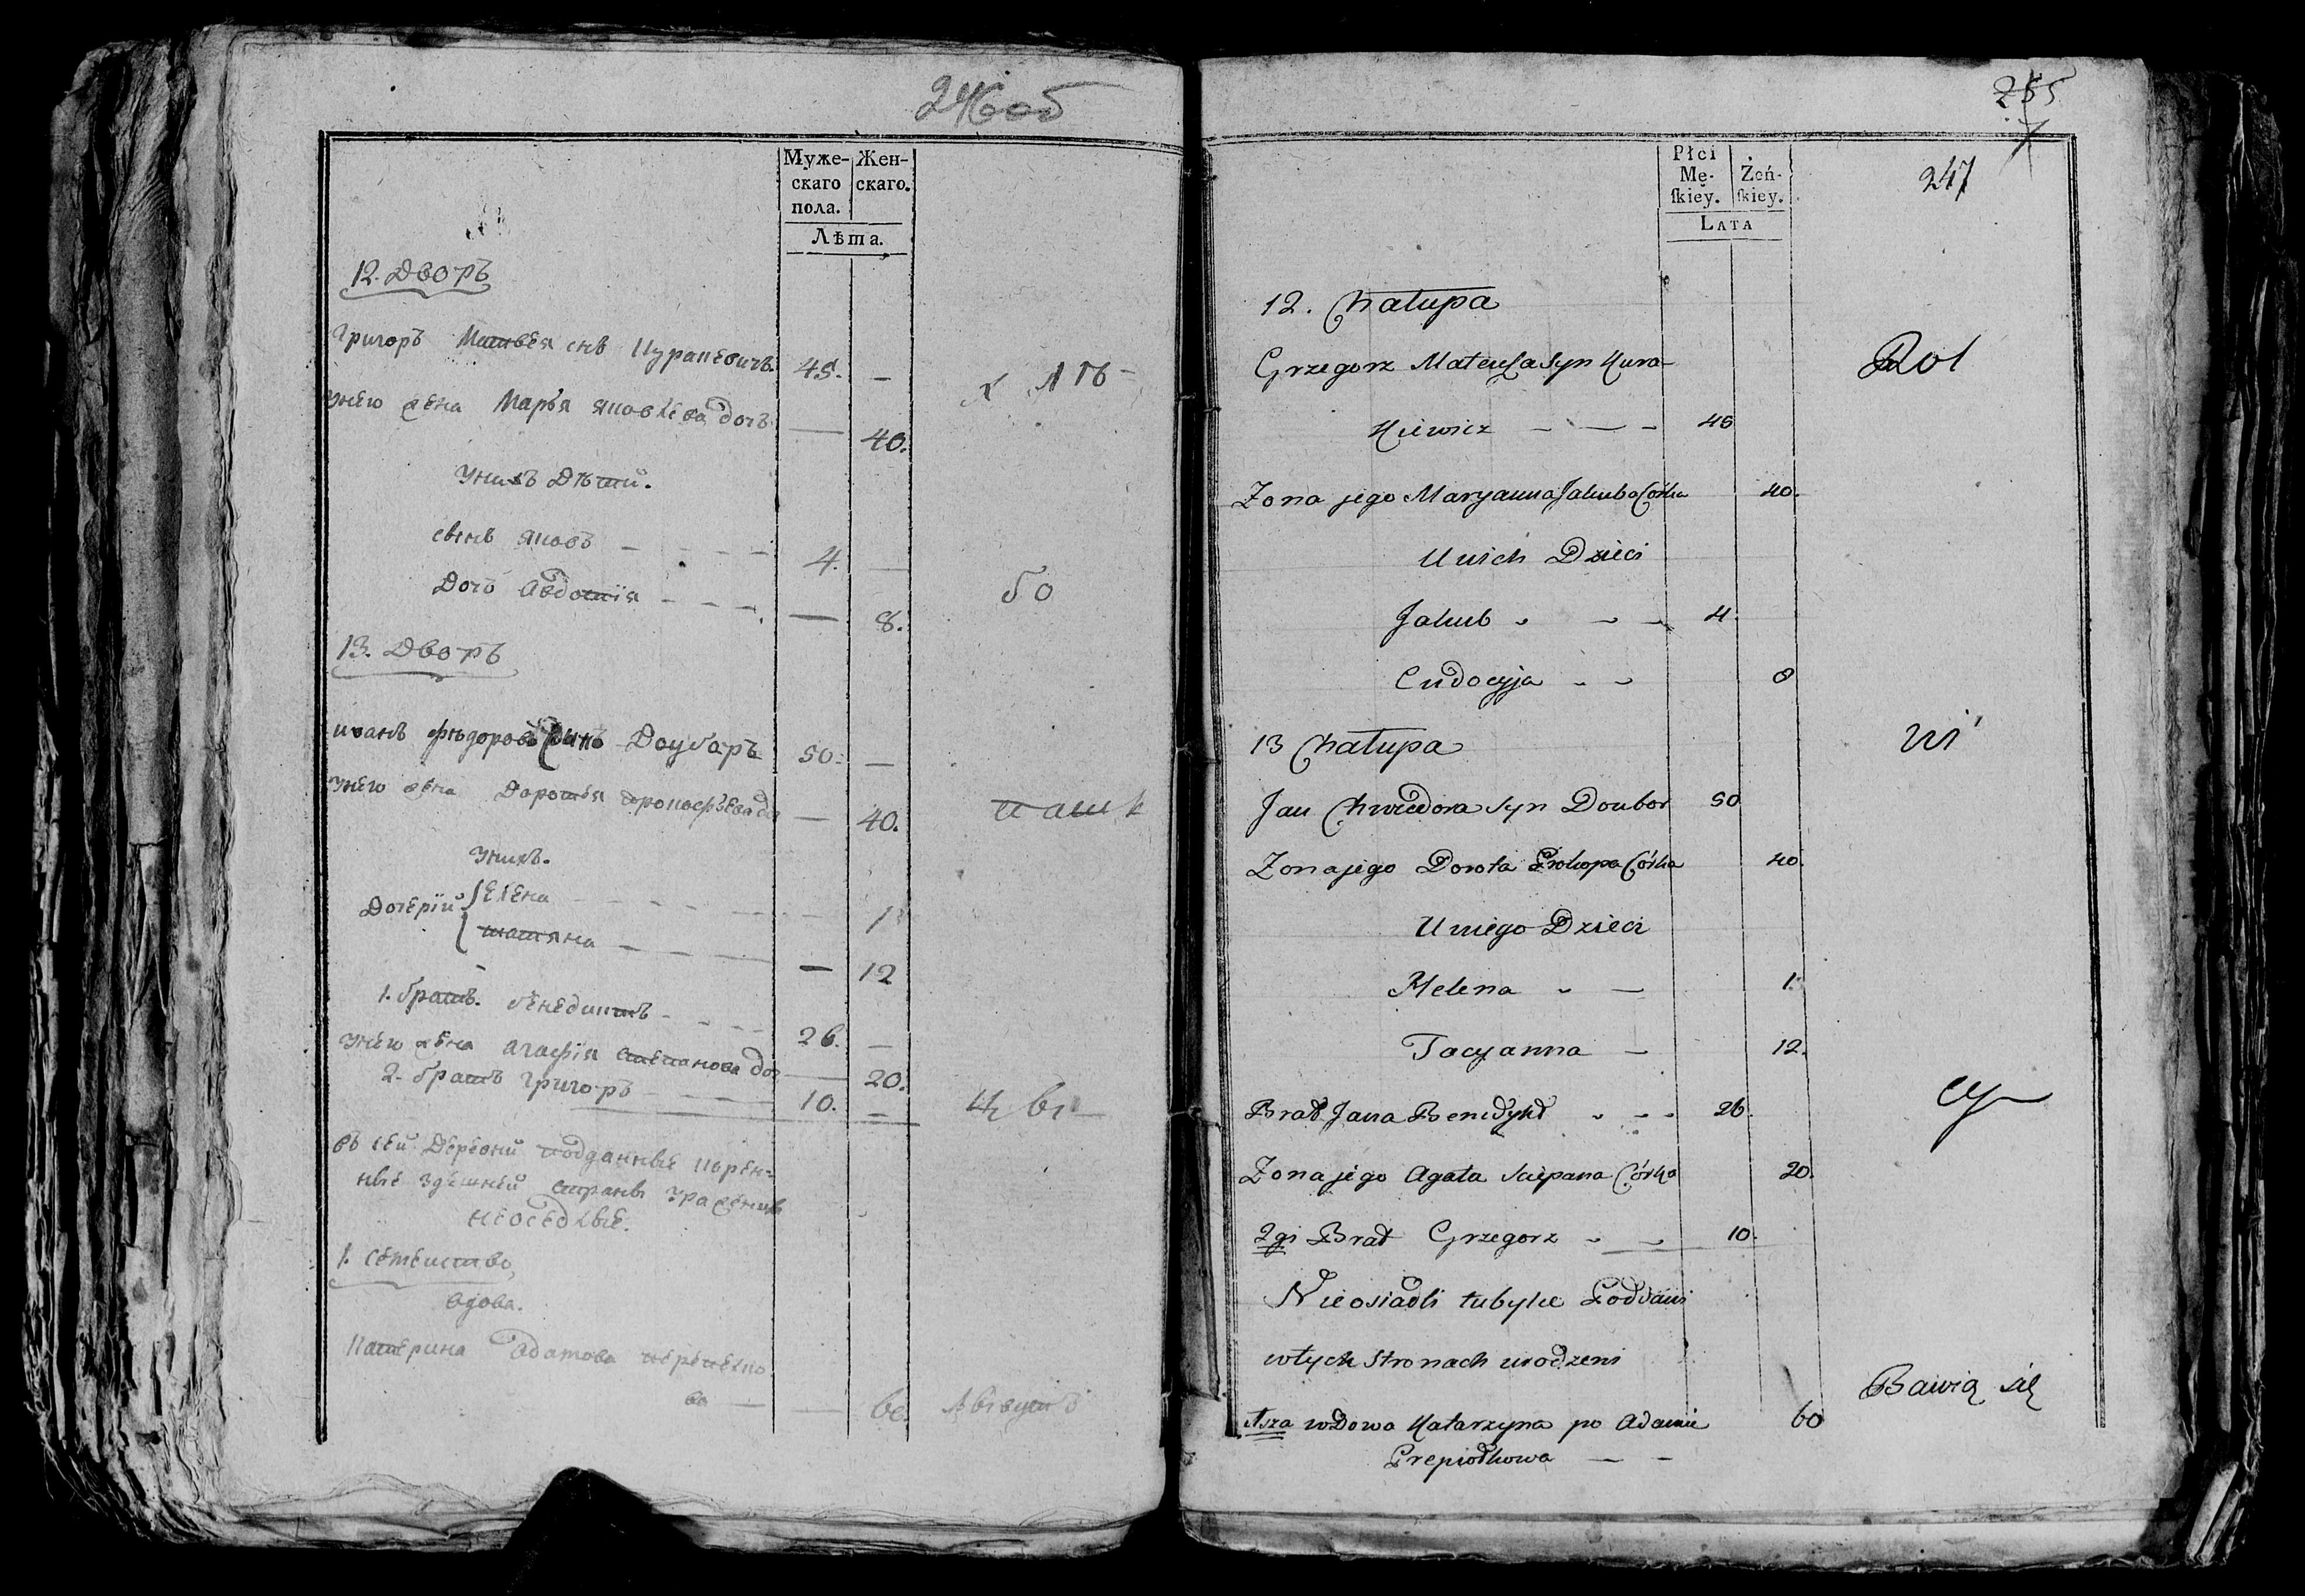 246об
Муже-
скаго
пола.
Жен-
скаго.
Лѣта.
12. Дворъ
Григоръ Матвея снъ Куракевичъ 45. —
Унего жена Марья Яковлева дочь — 40.
Унихъ Дѣтей.
сынъ Яковъ — 4. —
Дочь Авдотiя — — 8.
13. Дворъ
Иванъ Фѣдоровъ Сынъ Доубаръ 50. —
Унего жена Доротея Прокофьева до — 40.
Унихъ.
Дочерiй Елена 1
Татяна — — 12
1. братъ. бенедиктъ 26. —
Унего жена Агафiя Степанова до — 20.
2. братъ Григоръ 10. —
въ сей Деревни подданные корен-
ные здешней страны
неоседлые.
1. Семейство
вдова.
Катерина Адамова
ва — 60.
255
247
Płci
Mę-
ſkiey.
Żeń-
ſkiey.
Lata
12. Chałupa
Grzegorz Mateuſza Syn Kura-
Kiewicz — — — 45
Zona jego Maryanna Jakuba Córka 40.
U nich Dzieci
Jakub — — 4.
Eudocyja 8
13 Chałupa
Jan Chwiedora Syn Doubor 50
Zona jego Dorota Prokopa Córka 40.
U niego Dzieci
Helena — 1.
Tacyanna — 12.
Brat Jana Benedykt 26.
Zona jego Agata Sciepana Córka 20.
2gi Brat Grzegorz 10.
Nieosiadli tubylce Poddani
w tych Stronach urodzeni
1sza wdowa Katarzyna po Adamie 60
Prepiotkowa — —
Rol
ni
cy
Bawią się